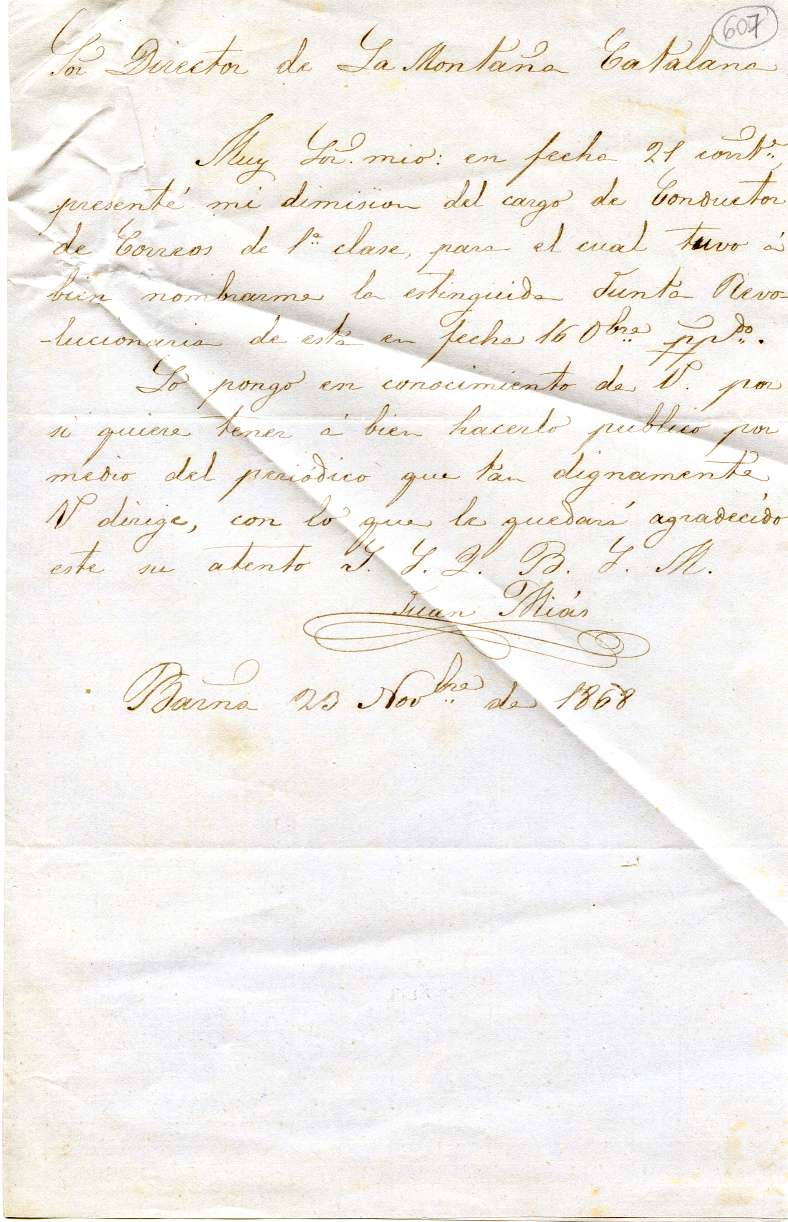 607
Sor Director de La Montaña Catalana
Muy Sor. mio: en fecha 21 corrte.
presenté mi dimision del cargo de Conductor
de Correos de 1ª clase, para el cual tuvo á
bien nombrarme la estinguida Junta Revo-
-lucionaria de esta en fecha 16 Obre. ppdo.
Lo pongo en conocimiento de V. por
si quiere tener á bien hacerlo publico por
medio del periódico que tan dignamente
V dirige, con lo que le quedará agradecido
este su atento S. S. Q. B. S. M.
Juan Miás
Barna 23 Novbre de 1868